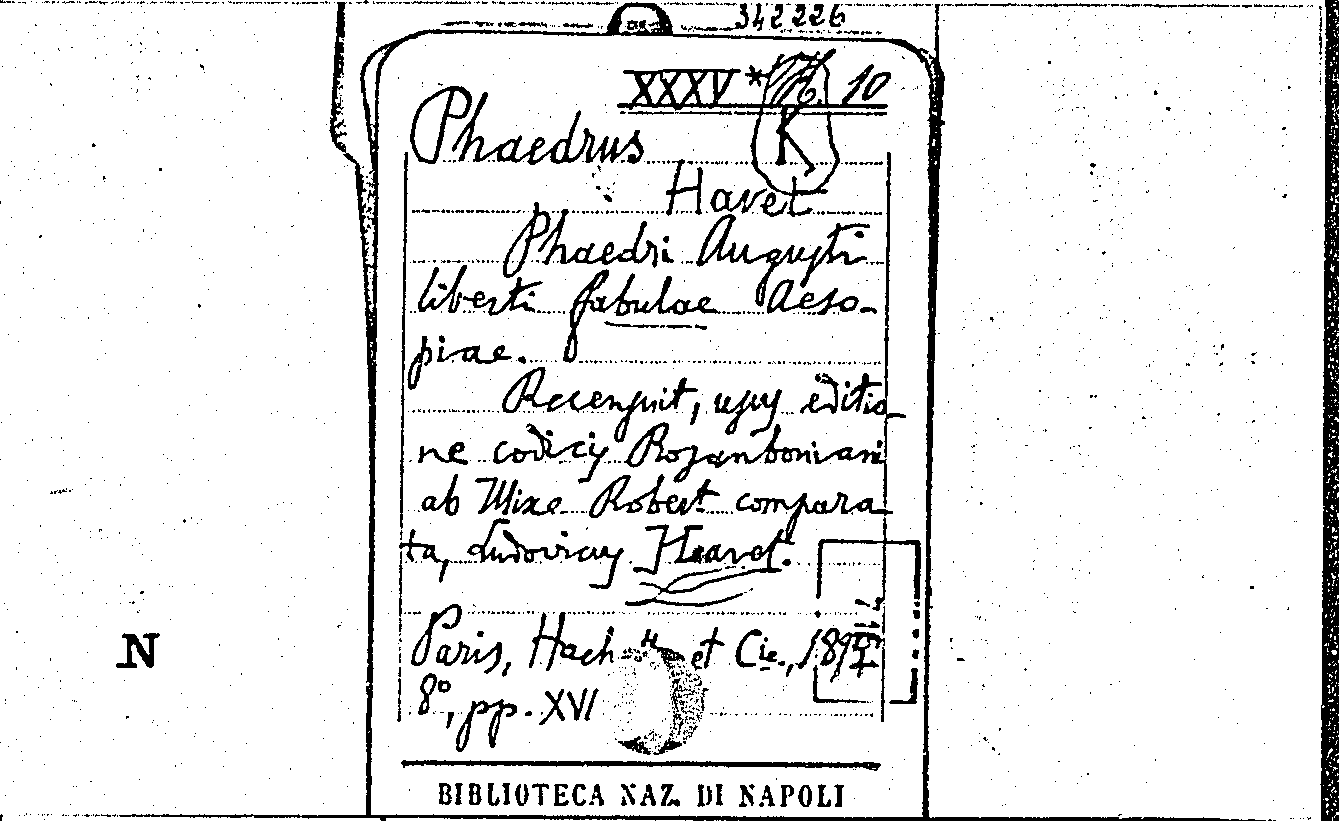 342226
XXXV * 10
K
Phaedrus
Havet
Phaedri Augusti
liberti fabulae Aeso-
piae.
Recensuit, usus editio-
ne codicis Rosanboniani
ab Ulixe Robert compara-
ta, Ludovicus Havet.
Paris, Hach et Cie.,
8°, pp. XVI
N
BIBLIOTECA NAZ. DI NAPOLI